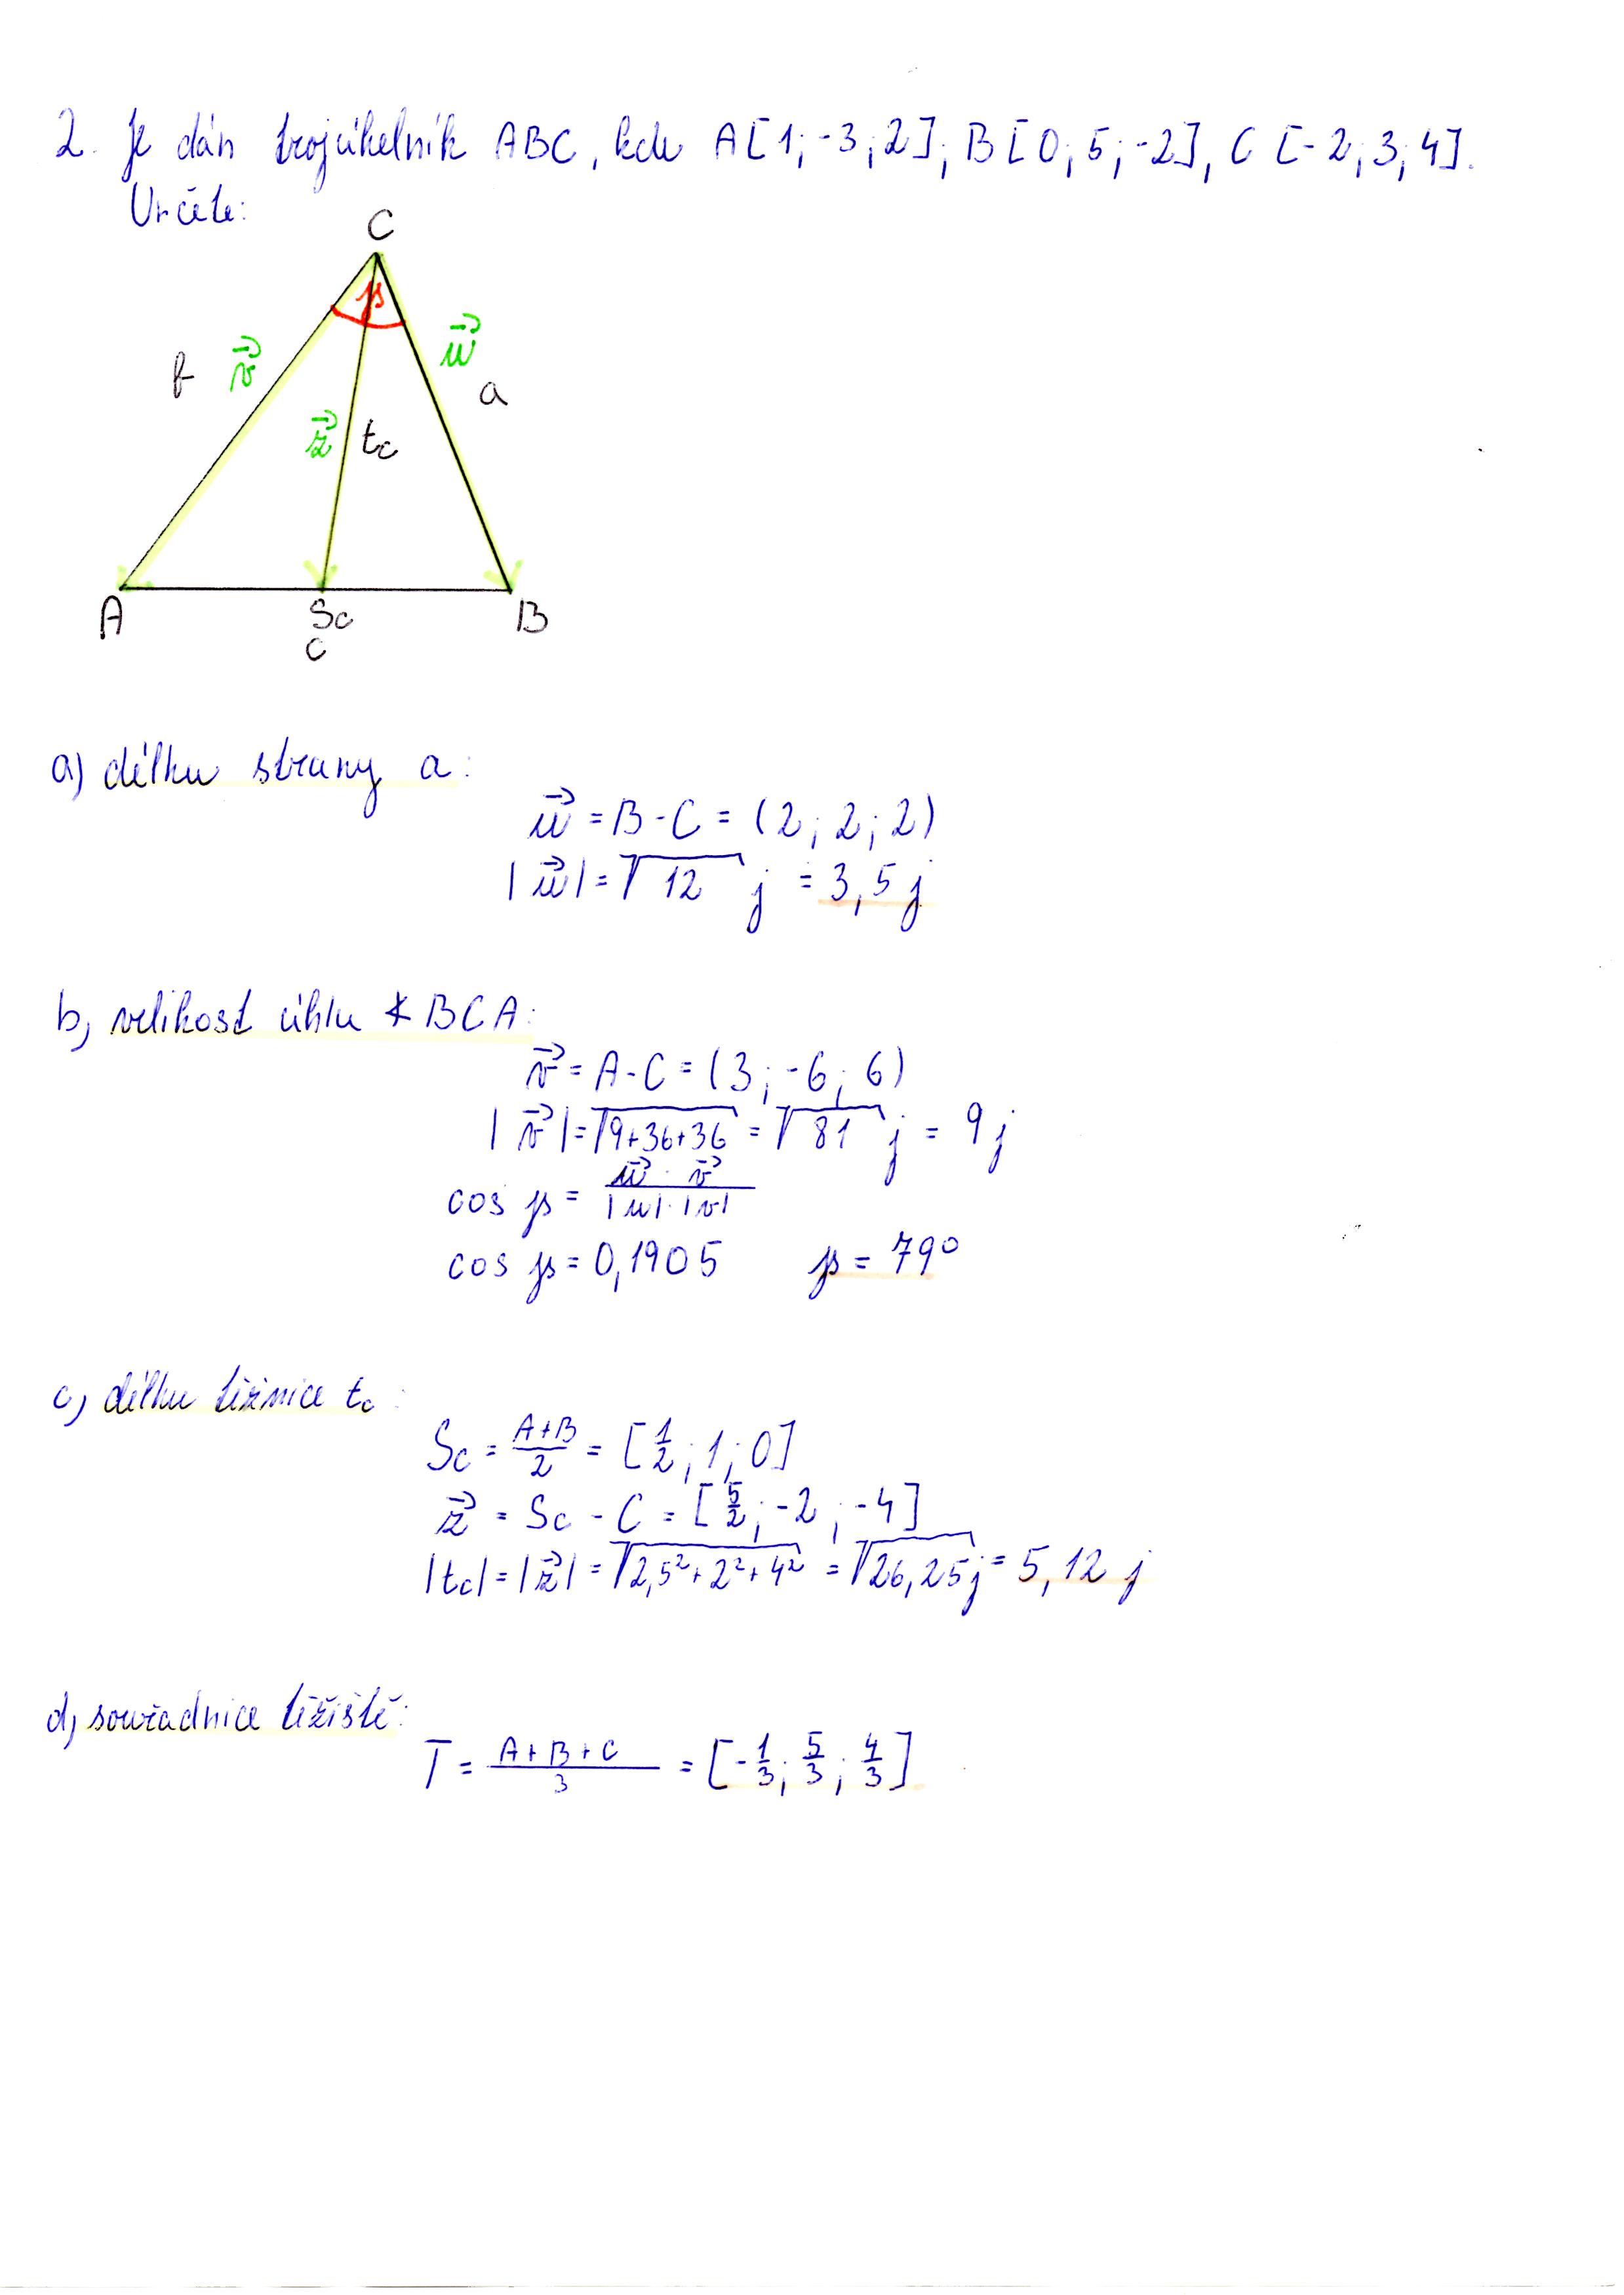 2. Je dán trojúhelník ABC, kde A[1;-3;2], B[0;5;-2], C[-2;3;4].
Určete:
C
φ
b v⃗
u⃗
a
z⃗ tc
A
Sc
B
c
a) délku strany a:
u⃗ = B-C = (2; 2; 2)
|u⃗| = √12 j = 3,5 j
b) velikost úhlu ∢BCA:
v⃗ = A-C = (3; -6; 6)
|v⃗| = √9+36+36 = √81 j = 9 j
cos φ = u⃗ · v⃗ / |u| · |v|
cos φ = 0,1905 φ = 79°
c) délku těžnice tc:
Sc = A+B / 2 = [1/2; 1; 0]
z⃗ = Sc - C = [5/2; -2; -4]
|tc| = |z⃗| = √2,5²+2²+4² = √26,25 j = 5,12 j
d) souřadnice těžiště:
T = A+B+C / 3 = [-1/3; 5/3; 4/3]